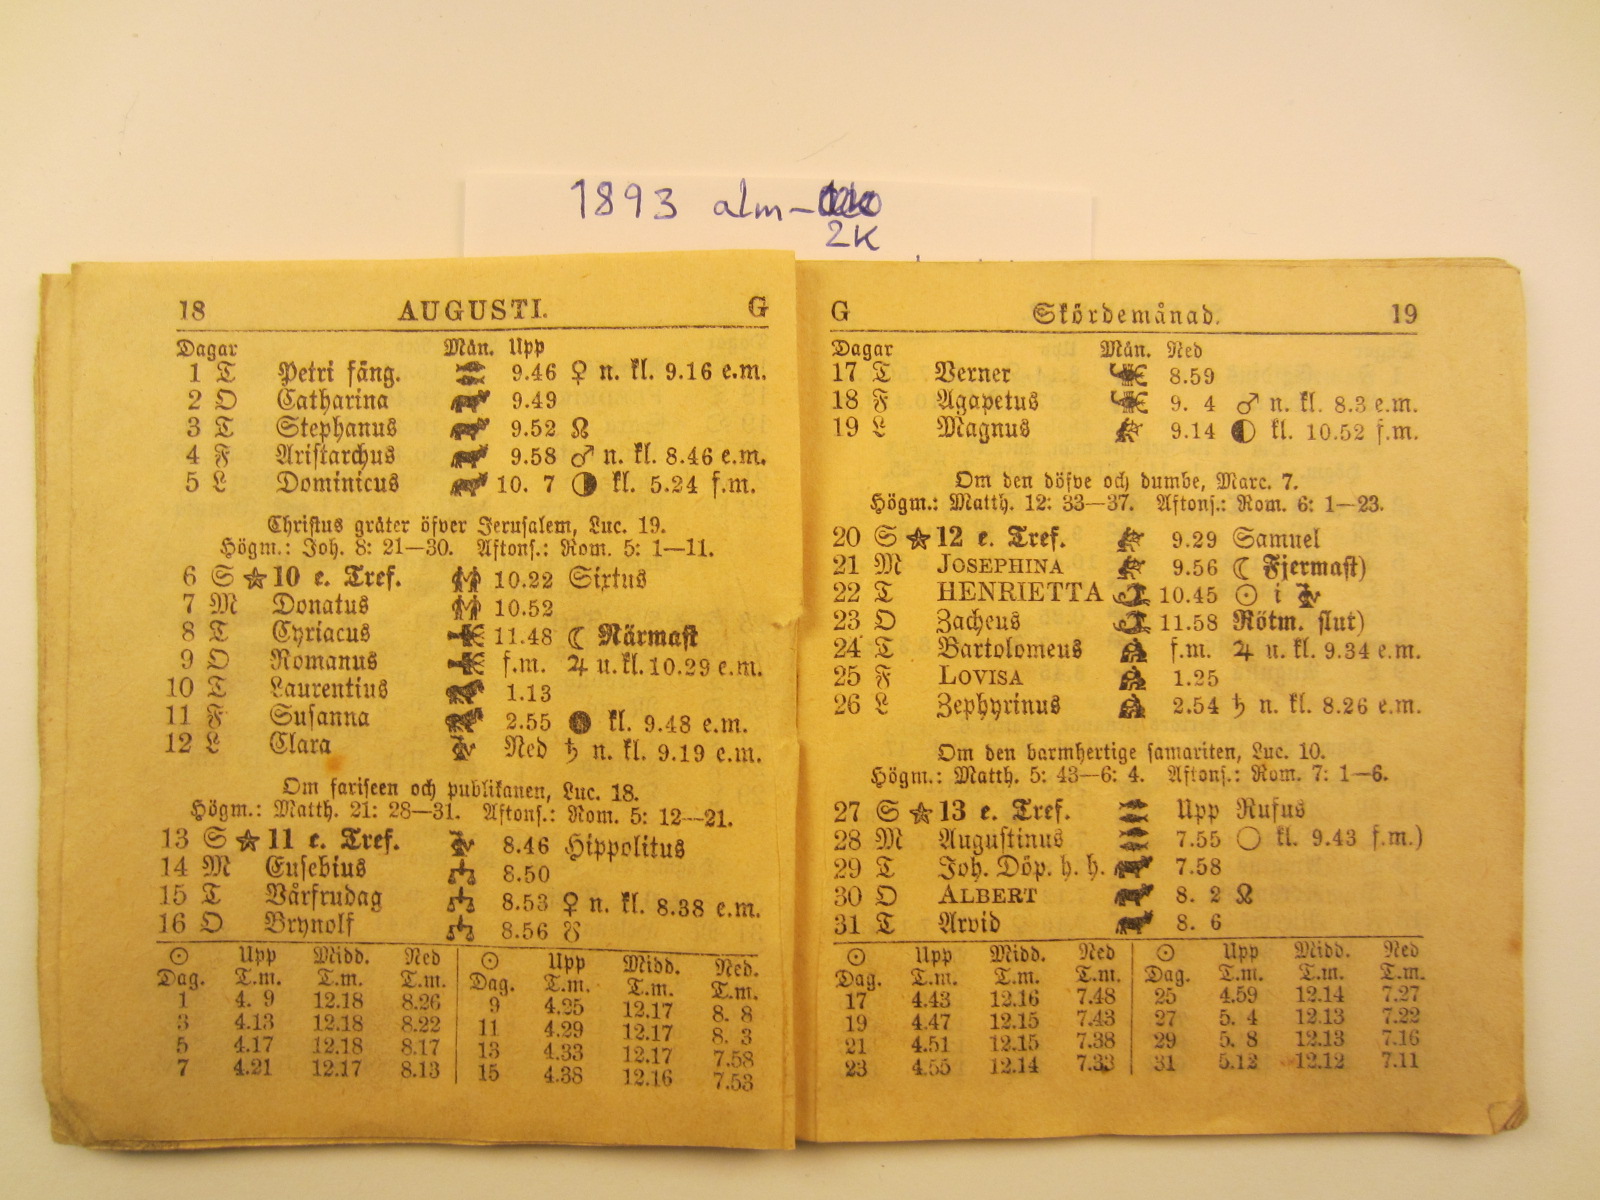 1893 alm-
2K
18 AUGUSTI. G
Dagar Mån. Upp
1 T Petri fäng. 9.46 ♀ n. kl. 9.16 e.m.
2 O Catharina 9.49
3 T Stephanus 9.52 ☊
4 F Aristarchus 9.58 ♂ n. kl. 8.46 e.m.
5 L Dominicus 10. 7 ◑ kl. 5.24 f.m.
Christus gråter öfver Jerusalem, Luc. 19.
Högm.: Joh. 8: 21—30. Aftons.: Rom. 5: 1—11.
6 S ★ 10 e. Tref. 10.22 Sixtus
7 M Donatus 10.52
8 T Cyriacus 11.48 ☾ Närmast
9 O Romanus f.m. ♃ u. kl. 10.29 e.m.
10 T Laurentius 1.13
11 F Susanna 2.55 ● kl. 9.48 e.m.
12 L Clara Ned ♄ n. kl. 9.19 e.m.
Om fariseen och publikanen, Luc. 18.
Högm.: Matth. 21: 28—31. Aftons.: Rom. 5: 12—21.
13 S ★ 11 e. Tref. 8.46 Hippolitus
14 M Eusebius 8.50
15 T Vårfrudag 8.53 ♀ n. kl. 8.38 e.m.
16 O Brynolf 8.56 ☋
☉ Upp Midd. Ned ☉ Upp Midd. Ned.
Dag. T.m. T.m. T.m. Dag. T.m. T.m. T.m.
1 4. 9 12.18 8.26 9 4.25 12.17 8. 8
3 4.13 12.18 8.22 11 4.29 12.17 8. 3
5 4.17 12.18 8.17 13 4.33 12.17 7.58
7 4.21 12.17 8.13 15 4.38 12.16 7.53
G Skördemånad. 19
Dagar Mån. Ned
17 T Verner 8.59
18 F Agapetus 9. 4 ♂ n. kl. 8.3 e.m.
19 L Magnus 9.14 ◐ kl. 10.52 f.m.
Om den döfve och dumbe, Marc. 7.
Högm.: Matth. 12: 33—37. Aftons.: Rom. 6: 1—23.
20 S ★ 12 e. Tref. 9.29 Samuel
21 M JOSEPHINA 9.56 ☾ Fjermast)
22 T HENRIETTA 10.45 ☉ i ♍
23 O Zacheus 11.58 Rötm. slut)
24 T Bartolomeus f.m. ♃ u. kl. 9.34 e.m.
25 F LOVISA 1.25
26 L Zephyrinus 2.54 ♄ n. kl. 8.26 e.m.
Om den barmhertige samariten, Luc. 10.
Högm.: Matth. 5: 43—6: 4. Aftons.: Rom. 7: 1—6.
27 S ★ 13 e. Tref. Upp Rufus
28 M Augustinus 7.55 ○ kl. 9.43 f.m.)
29 T Joh. Döp. h. h. 7.58
30 O ALBERT 8. 2 ☊
31 T Arvid 8. 6
☉ Upp Midd. Ned ☉ Upp Midd. Ned
Dag. T.m. T.m. T.m. Dag. T.m. T.m. T.m.
17 4.43 12.16 7.48 25 4.59 12.14 7.27
19 4.47 12.15 7.43 27 5. 4 12.13 7.22
21 4.51 12.15 7.38 29 5. 8 12.13 7.16
23 4.55 12.14 7.33 31 5.12 12.12 7.11